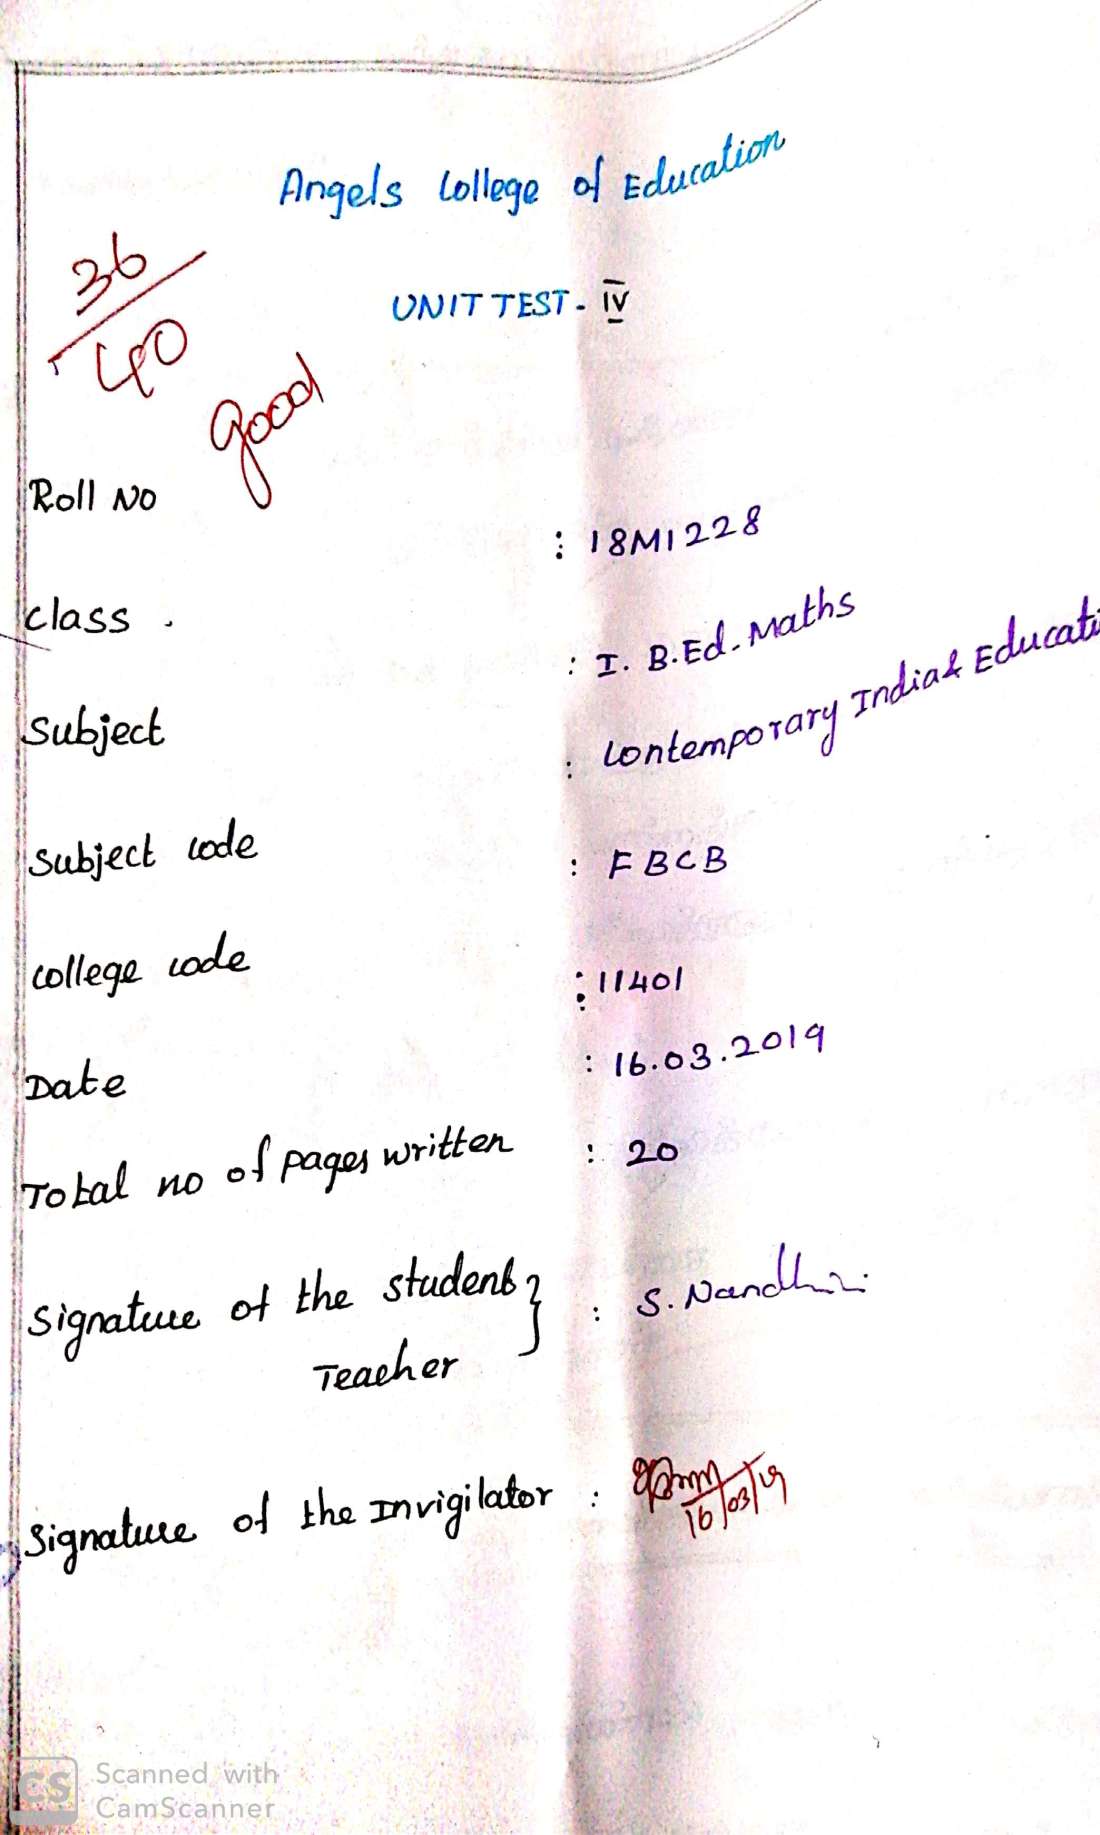 Angels College of Education
36
40
UNIT TEST - IV
good
Roll No : 18M1228
class : I. B.Ed. Maths
Subject : Contemporary India & Educati
Subject code : FBCB
college code : 11401
Date : 16.03.2019
Total no of pages written : 20
Signature of the student } : S. Nandhini
Teacher
Signature of the Invigilator :
16/03/19
CS Scanned with
CamScanner